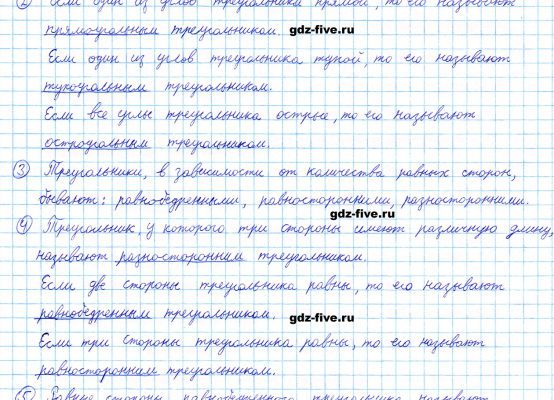 ② Если один из углов треугольника прямой, то его называют
прямоугольным треугольником. gdz-five.ru
Если один из углов треугольника тупой, то его называют
тупоугольным треугольником.
Если все углы треугольника острые, то его называют
остроугольным треугольником. gdz-five.ru
③ Треугольники, в зависимости от количества равных сторон,
бывают: равнобедренными, равносторонними, разносторонними.
gdz-five.ru
④ Треугольник, у которого три стороны имеют различную длину,
называют разносторонним треугольником.
Если две стороны треугольника равны, то его называют
равнобедренным треугольником. gdz-five.ru
Если три стороны треугольника равны, то его называют
равносторонним треугольником.
⑤ Равные стороны равнобедренного треугольника называют